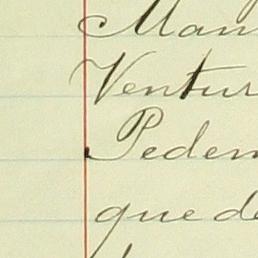 Man
Ventur
Pedern
que de